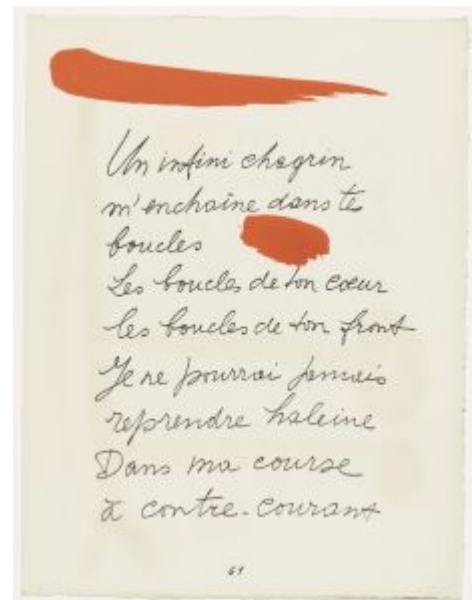 Un infini chagrin
m'enchaîne dans tes
boucles
Les boucles de ton cœur
les boucles de ton front
Je ne pourrai jamais
reprendre haleine
Dans ma course
à contre-courant
61